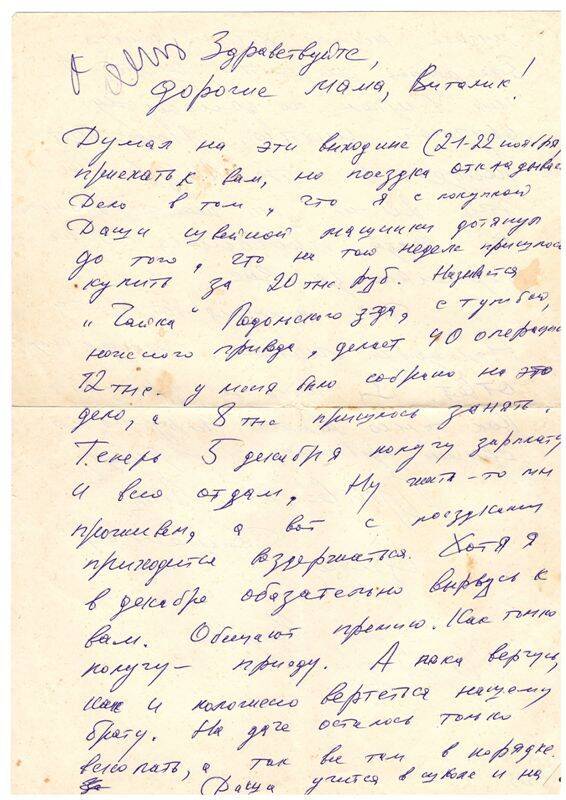 Здравствуйте,
дорогие мама, Виталик!
Думал на эти выходные (21-22 ноября
приехать к вам, но поездка откладывае
Дело в том, что я с покупкой
Даши швейной машинки дотянул
до того, что на той неделе пришлось
купить за 20 тыс. руб. Называется
"Чайка" Подольского з-да, с тумбой,
ножного привода, делает 40 операций
12 тыс. у меня было собрано на это
дело, а 8 тыс пришлось занять.
Теперь 5 декабря получу зарплату
и всю отдам. Ну жить-то мы
проживём, а вот с поездками
приходится воздержаться. Хотя я
в декабре обязательно вырвусь к
вам. Обещают премию. Как только
получу — приеду. А пока верчусь,
как и положено вертеться нашему
брату. На даче осталось только
вскопать, а так все там в порядке.
Даша учится в школе и на